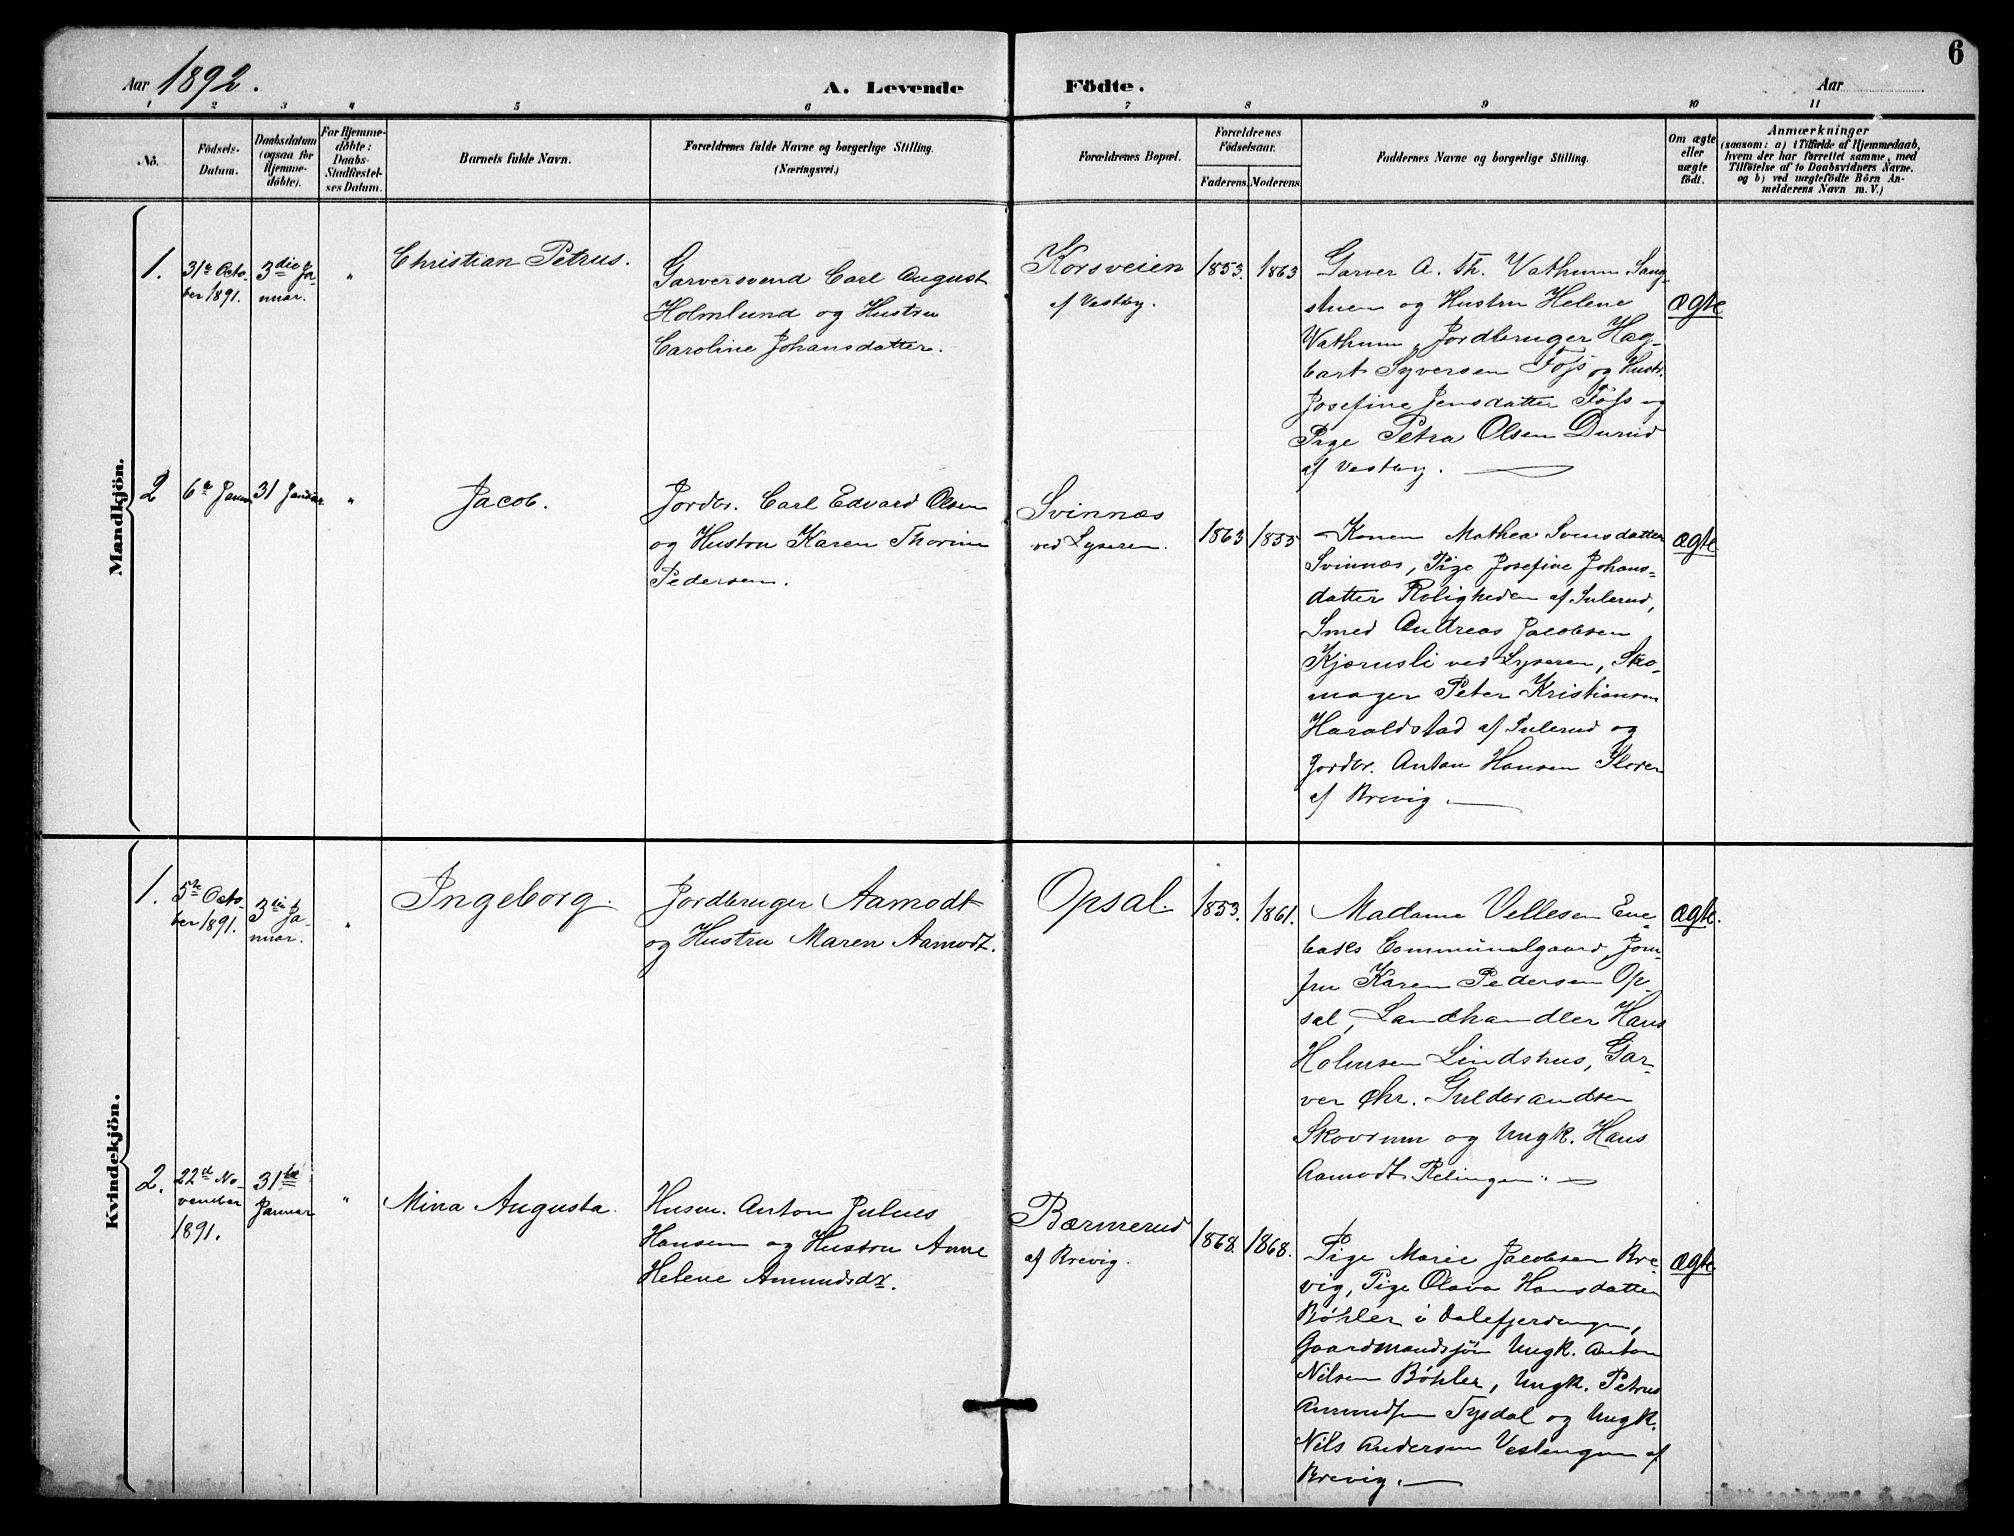 6
Aar 1892.
A. Levende Födte.
Aar
1 2 3 4 5 6 7 8 9 10 11
No.
Födsels-
Datum.
Daabsdatum
(ogsaa for
Hjemme-
döbte).
For Hjemme-
döbte:
Daabs-
Stadfæstel-
ses Datum.
Barnets fulde Navn.
Forældrenes fulde Navne og borgerlige Stilling.
(Næringsvei.)
Forældrenes Bopæl.
Forældrenes
Födselsaar.
Faderens. Moderens.
Faddernes Navne og borgerlige Stilling.
Om ægte
eller
uægte
födt.
Anmærkninger
(saasom: a) i Tilfælde af Hjemmedaab,
hvem der har forrettet samme, med
Tilföielse af to Daabsvidners Navne.
og b) ved uægtefödte Börn An-
melderens Navn m. V.)
Mandkjön.
1.
31te Octo-
ber 1891.
3die Ja-
nuar.
"
Christian Petrus.
Garversvend Carl August
Holmlund og Hustru
Caroline Johansdatter.
Korsveien
af Vestby.
1853.
1863
Garver A. Th. Vathum Sang-
stuen og Hustru Helene
Vathum, Jordbruger Hag-
bart Syversen Foss og Hustr.
Josefine Jensdatter Foss og
Pige Petra Olsen Durud
af Vestby.
ægte
2
6te Januar
31 Januar
"
Jacob.
Jordbr. Carl Edvard Olsen
og Hustru Karen Thorine
Pedersen.
Svinnæs
ved Lyseren.
1863
1855
Konen Mathea Svensdatter
Svinnæs, Pige Josefine Johans-
datter Roligheden af Sulerud,
Smed Andreas Jacobsen
Kjærnsli ved Lyseren, Sko-
mager Peter Kristiansen
Haraldstad af Sulerud og
Jordbr. Anton Hansen
af Brevig.
ægte
Kvindekjön.
1.
5te Octo-
ber 1891.
3die Ja-
nuar.
"
Ingeborg.
Jordbruger Aamodt
og Hustru Maren Aamodt.
Opsal.
1853.
1861.
Madame Vellesen Ene
baks Communalgaard, Jom-
fru Karen Pedersen Op-
sal, Landhandler Hans
Holmsen Lindshus, Gar-
ver Chr. Guldbrandsen
Skovrum og Ungk. Hans
Aamodt Relingen.
ægte.
2.
22de No-
vember
1891.
31te
Januar
"
Mina Augusta.
Husm. Anton Julius
Hansen og Hustru Anne
Helene Amundsdr.
Bærmerud
af Brevig.
1868.
1868.
Pige Marie Jacobsen Bre-
vig, Pige Olava Hansdatter
Bøhler i Dalefjerdingen,
Gaardmandssøn Ungk. Anton
Nilsen Bøhler, Ungk. Petrus
Amundsen Tysdal og Ungk.
Nils Andersen Vestengen af
Brevig.
ægte